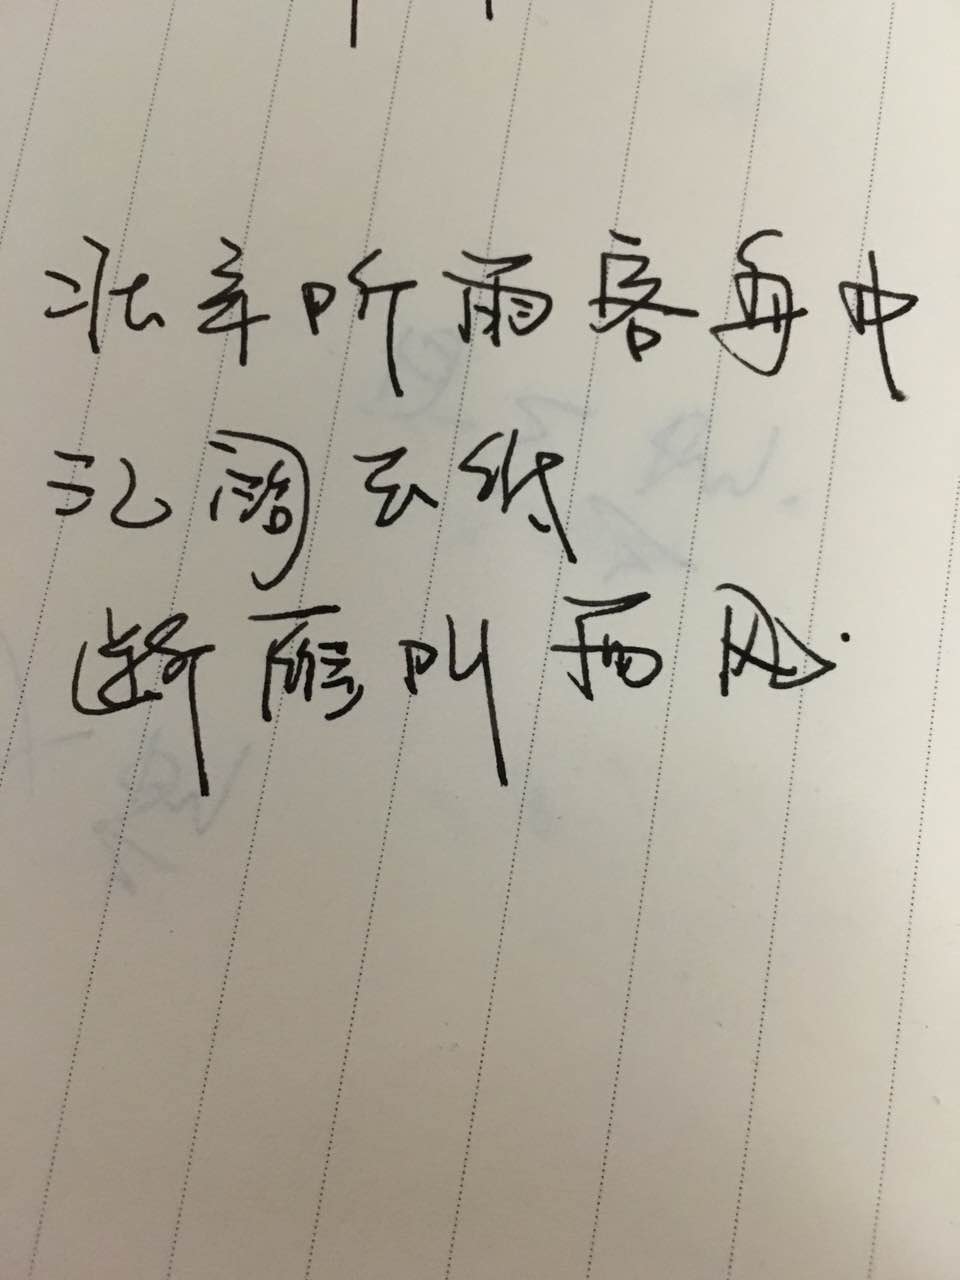 壮年听雨客舟中
江阔云低
断雁叫西风.